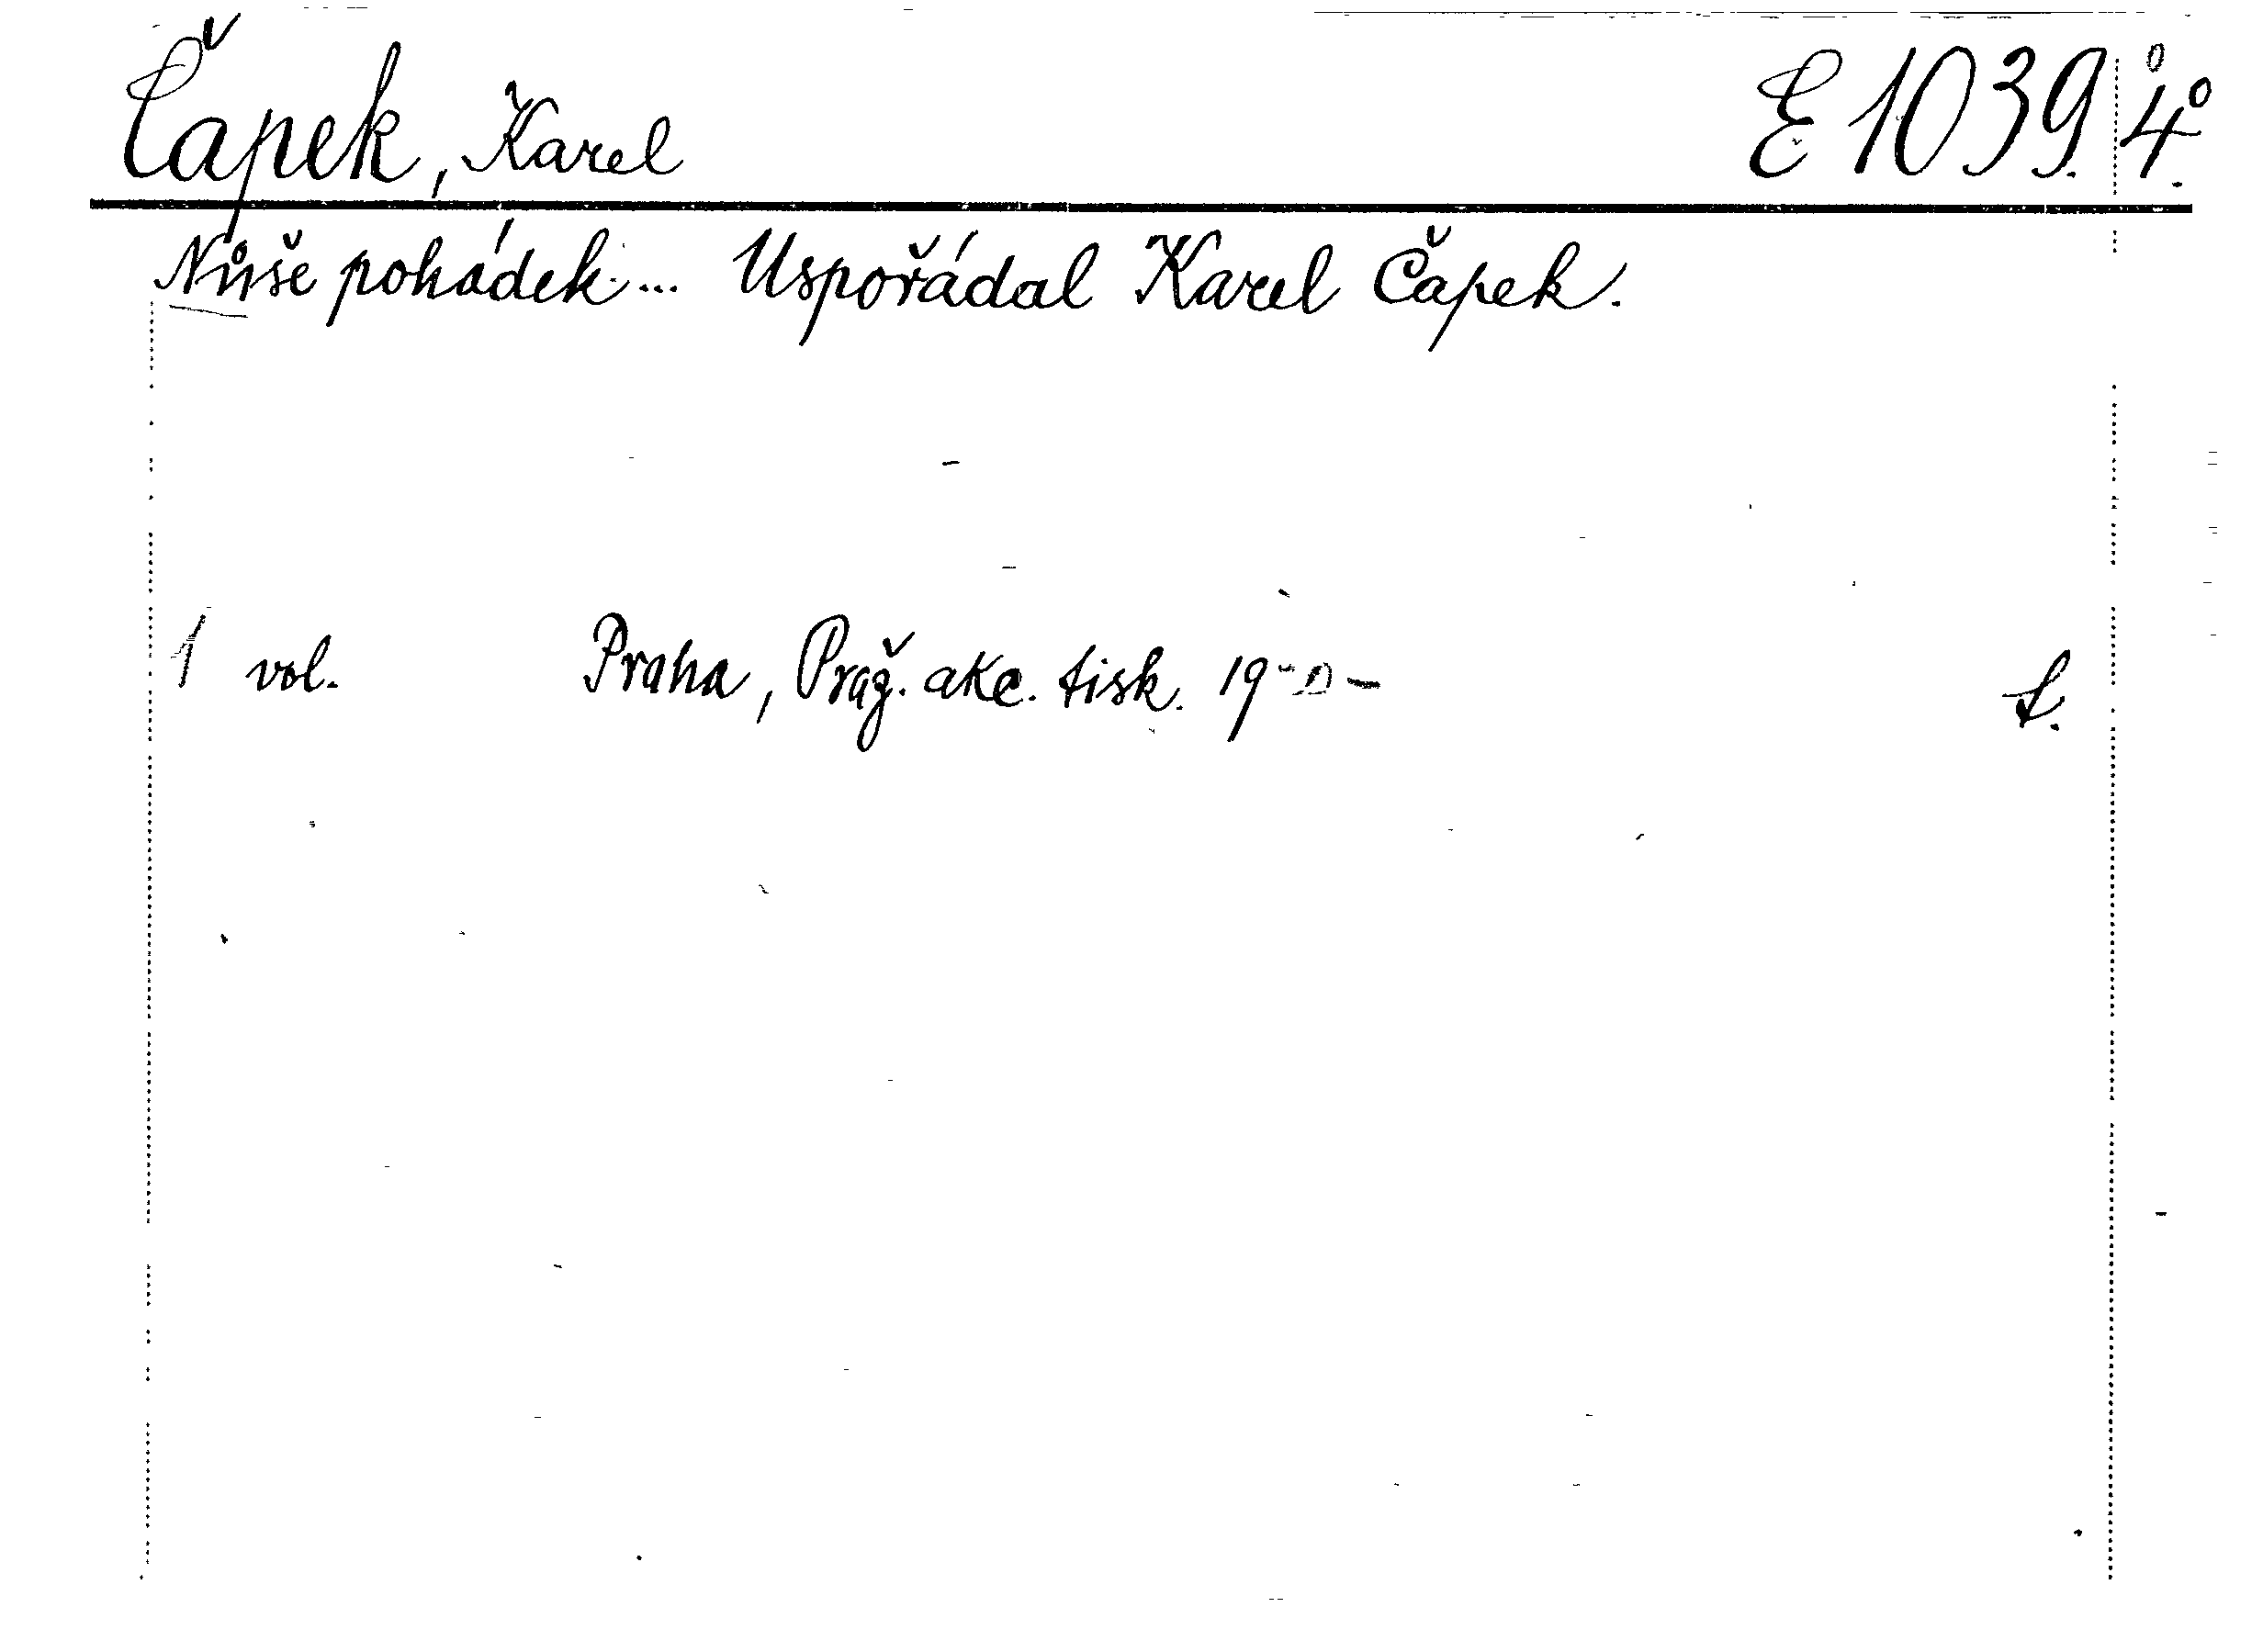 Čapek, Karel E 1039. 4°.
Nůše pohádek... Uspořádal Karel Čapek.
1 vol. Praha, Praž. akc. tisk. 19--